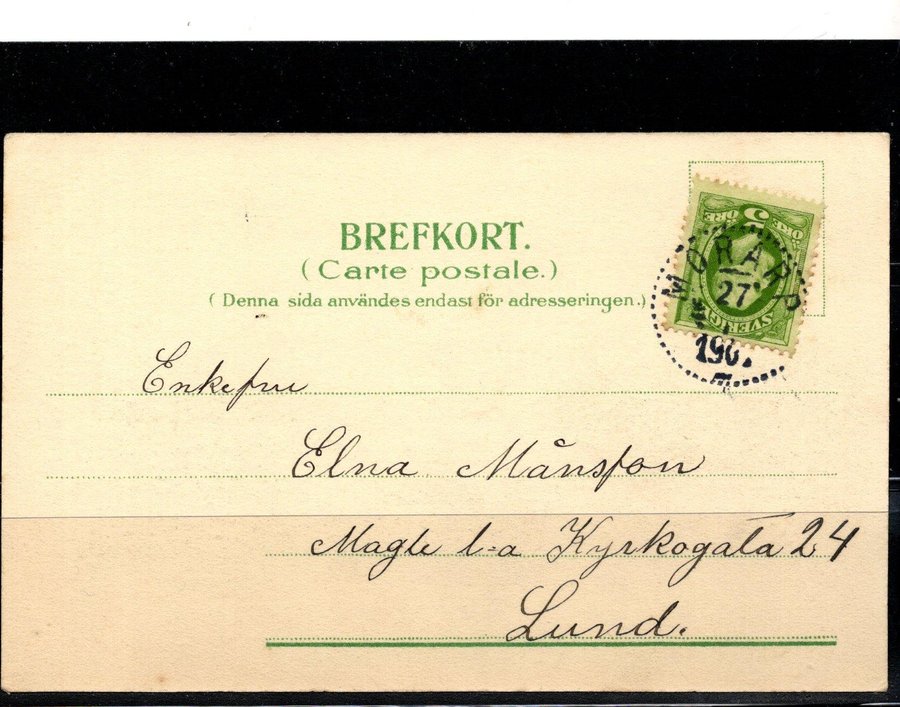 BREFKORT.
(Carte postale.)
(Denna sida användes endast för adresseringen.)
5
ÖRE ÖRE
SVERIGE
MÖRARP
27
190
Enkefru
Elna Månsson
Magle l:a Kyrkogata 24
Lund.